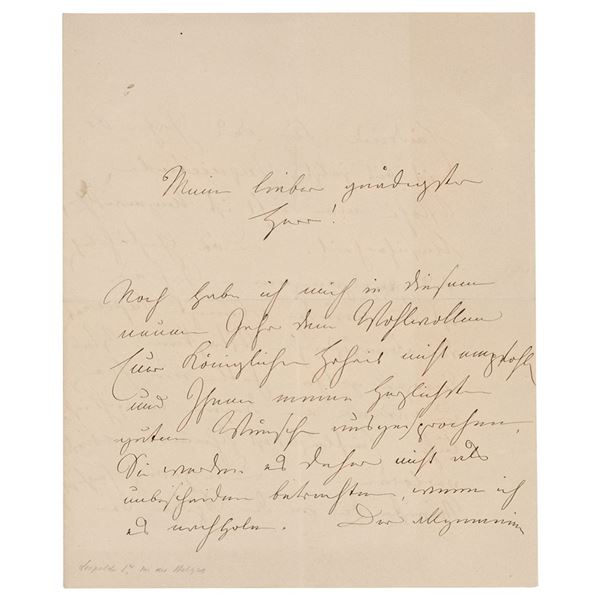 Mein lieber gnädigster
Herr!
Noch habe ich mich in diesem
neuen Jahr dem Wohlwollen
Eurer Königlichen Hoheit nicht empfohlen
und Ihnen meine herzlichsten
guten Wünsche ausgesprochen.
Sie werden es daher nicht als
unbescheiden betrachten, wenn ich
es nachhole. Die allgemeinen